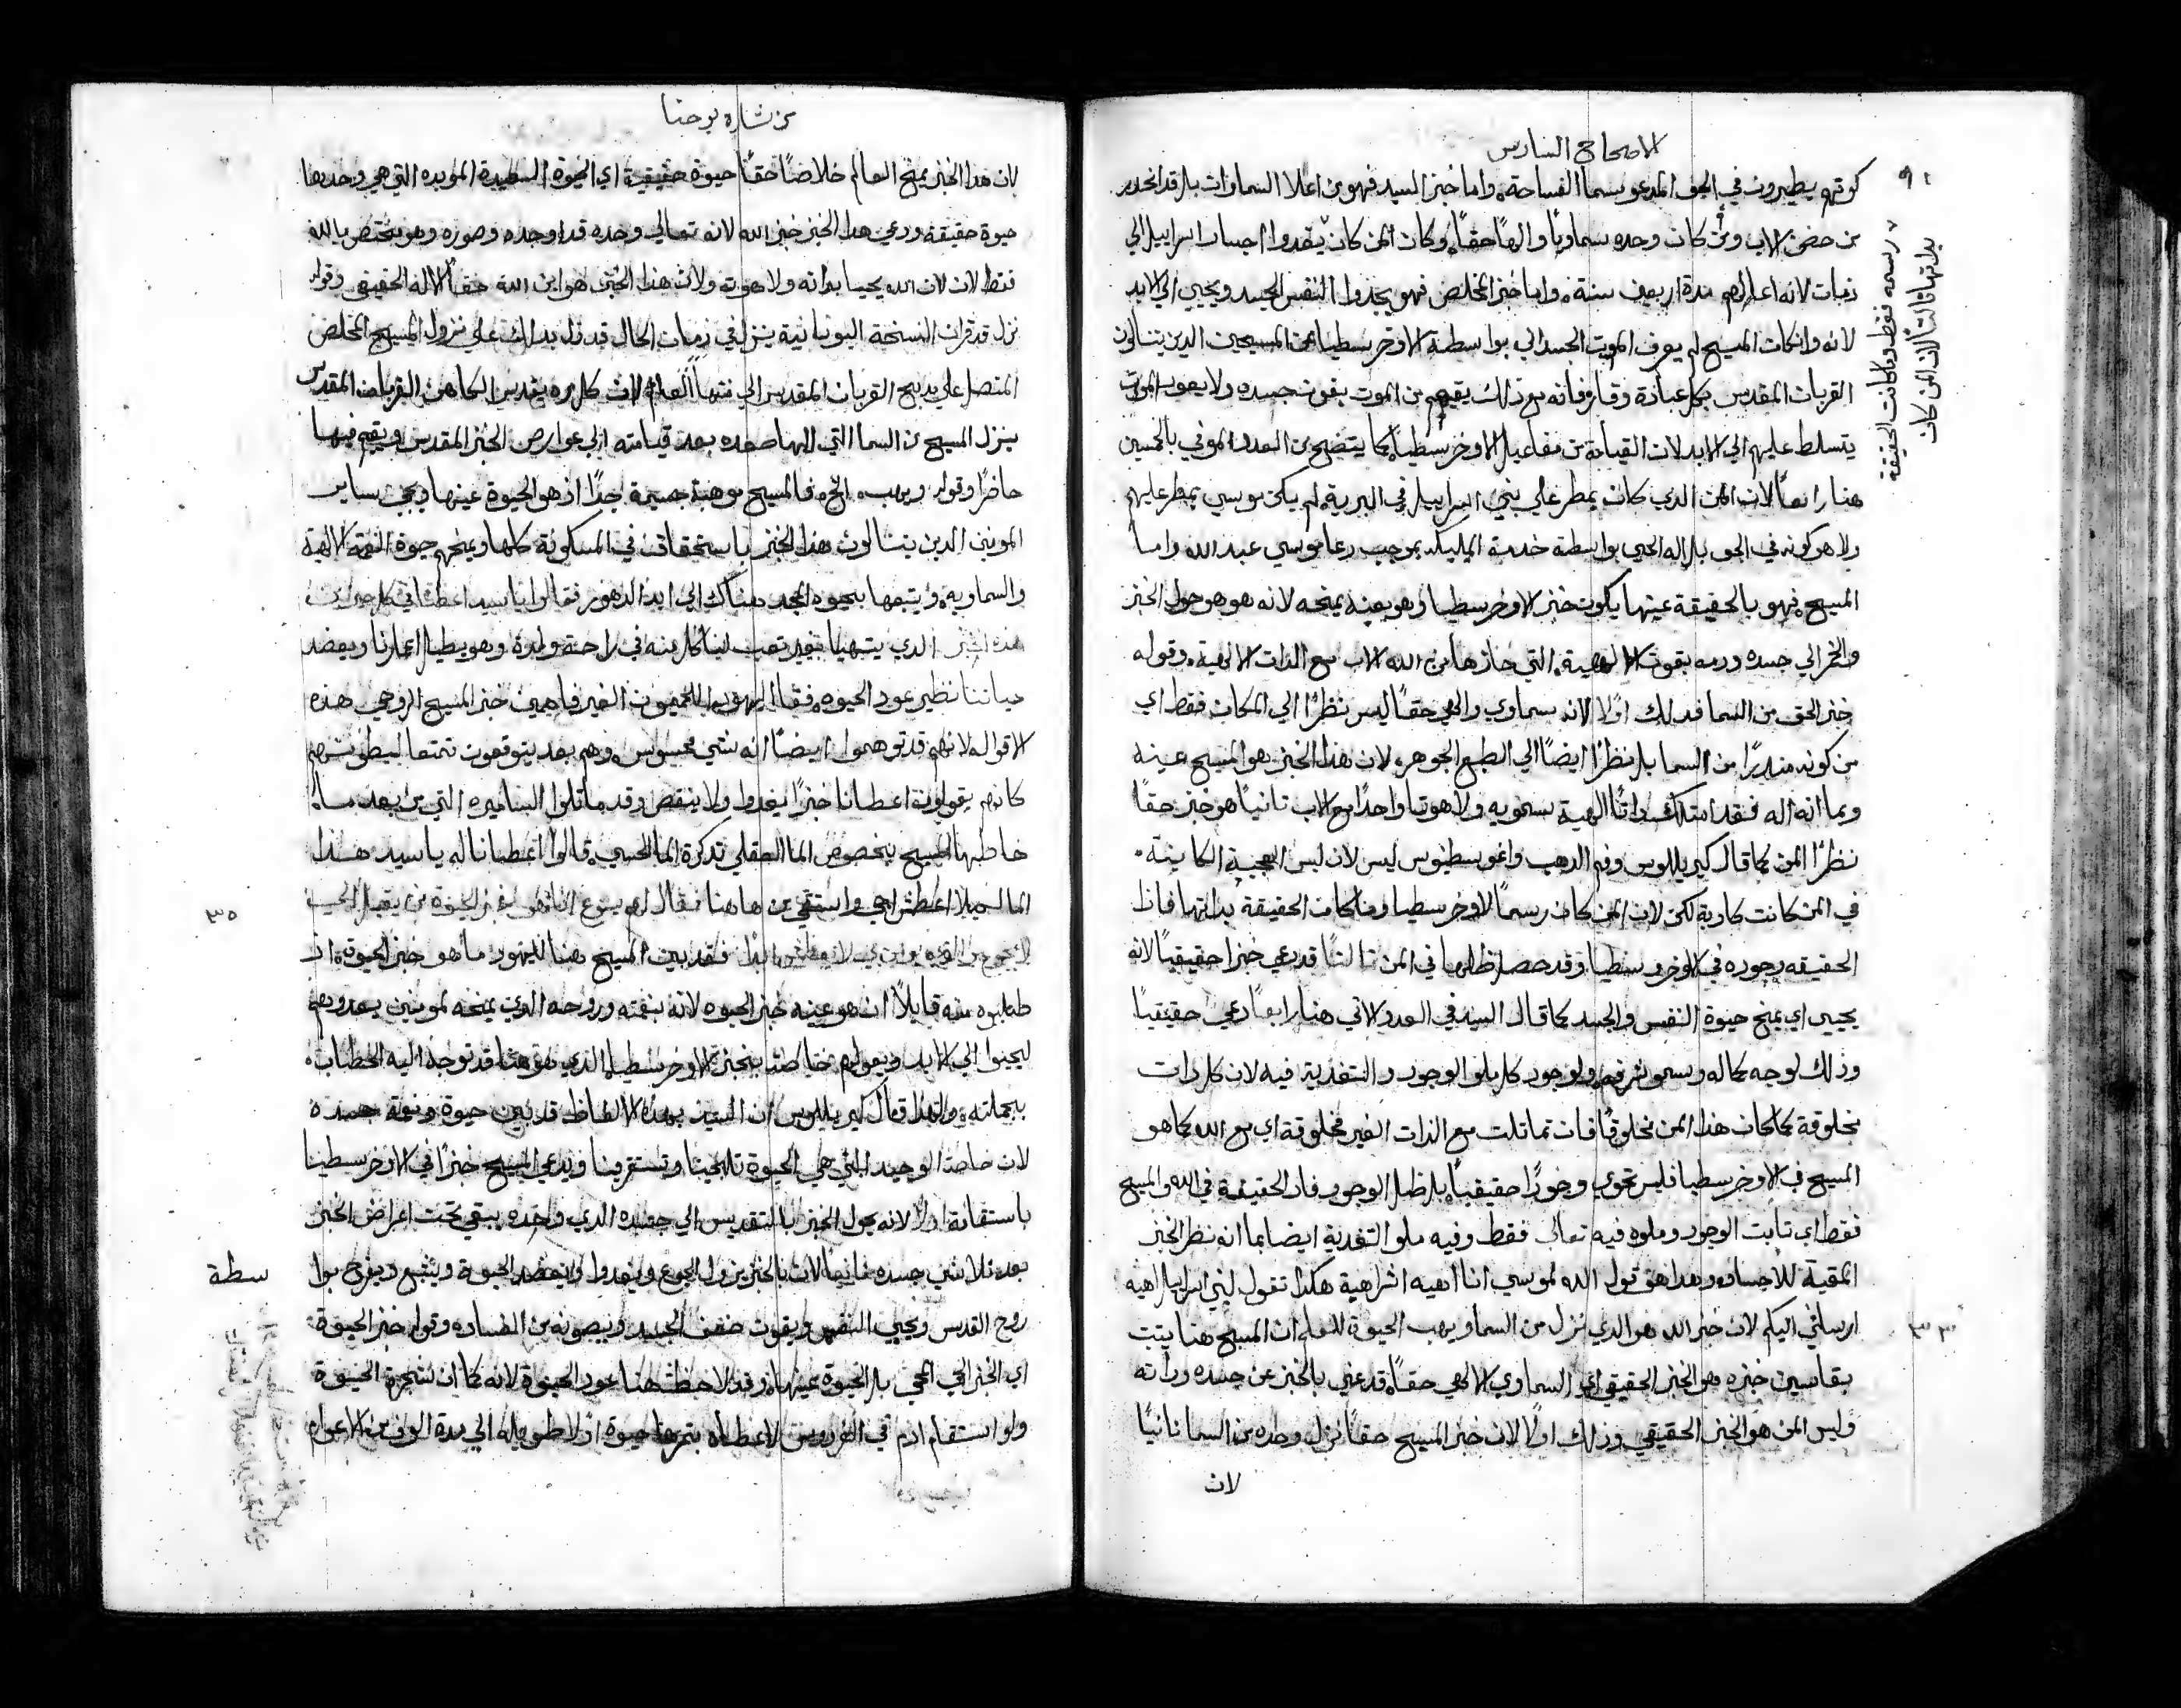 الاصحاح السادس
٩١
كونهم يطيرون في الجو المدعو بسما الفساحة، واما خبز السيد فهو من اعلا السماوات بل قد انحدر
من حضن الاب ومن كان وحده سماويًا والهًا حقًا، وكان المن كان يغدوا اجساد اسراييل الي
زمان لانه اعالهم مدة اربعين سنة، واما خبز المخلص فهو يجدوا النفس الجسد ويحيي الي الابد
لانه وان كان المسيح لم يعرف الموت الجسداني بواسطة الاوخرسطيا عن المسيحيين الدين يتنالون
القربان المقدس بكل عبادة ووقار فانه مع ذلك يقيمهم من الموت بقوت جسده ولا يعود الموت
يتسلط عليهم الي الابد لان القيامة من مفاعيل الاوخرسطيا، كما يتضح من العدد الموفي بالخمسين
هنا رابعًا لان المن الدي كان يمطر علي بني اسراييل في البرية لم يكن موسي يمطر عليهم
ولا هو كونه في الجو بل اله الحي بواسطة خدمة المليكه بموجب دعا موسي عبد الله واما
المسيح فهو بالحقيقة عينها يكون خبز الاوخرسطيا وهو بعينه يمنحه لانه هو هو حول الخبز
والخمر الي جسده ودمه بقوت الالوهية، التي حازها من الله الاب مع الذات الالهية، وقوله
خبز الحق من السما فدلك اولًا لانه سماوي والهي حقًا ليس نظرًا الي المكان فقط اي
من كونه منحدرًا من السما بل نظرًا ايضًا الي الطبع الجوهر، لان هذا الخبز هو المسيح عينه
وبما انه اله فقد امتلك ذاتًا الهية سموية ولاهوتا واحدًا مع الاب ثانيًا هو خبز حقًا
نظرًا المن كما قال كيريللوس وفم الدهب واغوسطينوس ليس لان ليس العجيبة الكاينة
في المن كانت كادبة لكن لان المن كان رسمًا للاوخرسطيا وما كان الحقيقة بداتها فاذًا
الحقيقه وجوده في الاوخرسطيا وقد حصل ظلها في المن ثالثًا قد دعي خبزًا حقيقيًا لانه
يحيي اي يمنح حيوة النفس والجسد كما قال السيد في العدد الاتي هنا رابعًا دعي حقيقيًا
وذلك لوجه كماله وسمو شرفه ولوجود كل ملو الوجود والتغذية فيه لان كل ذات
مخلوقة كما كان هذا المن مخلوقًا فان تماثلت مع الذات الغير مخلوقة اي مع الله كما هو
المسيح في الاوخرسطيا فليس تحوي وجودًا حقيقيًا، بل ظل الوجود فان الحقيقة في الله والمسيح
فقط اي ثابت الوجود وملوه فيه تعالي فقط وفيه ملو التغدية ايضا بما انه نظر الخبز
المقية للاجساد، وهدا هو قول الله لموسي انا اهيه اشراهية هكدا تقول لبني اسراييل اهيه
ارسلني اليكم لان خبز الله هو الدي نزل من السما ويهب الحيوة للعالم ان المسيح هنا يثبت
بقاسين خبزه هو الخبز الحقيقي اي السماوي الالهي حقًا، قد عني بالخبز عن جسده وذاته
وليس المن هو الخبز الحقيقي وذلك اولًا لان خبز المسيح حقًا نزل وحده من السما ثانيًا
لان
٣٣
رسمه فقط وما كانت الحقيقه
بداتها ثالثًا لان المن كان
من بشاره يوحنا
لان هدا الخبز يمنح العالم خلاصًا حقًا حيوة حقيقية اي الحيوة السعيدة الموبده التي هي وحدها
حيوة حقيقة ودعي هدا الخبز خبز الله لانه تعالي وحده قد اوجده وصوره وهو يختص بالله
فقط لان لان الله يحيا بداته ولاهوته ولان هدا الخبز هو ابن الله حقًا الاله الحقيقي وقوله
نزل قد قرات النسخة اليونانية ينزل في زمان الحال قد دل بدلك علي نزول المسيح المخلص
المتصل علي مدبح القربان المقدس الي منتها العالم لان كل مره يقدس الكاهن القربان المقدس
ينزل المسيح من السما التي اليها صعد بعد قيامته الي عوارض الخبز المقدس ويقيم فيها
حاضرًا وقوله ويهب، الخ فالمسيح موهبة جسيمة جدًا اذ هو الحيوة عينها ويحيي ساير
المومنين الدين يتنالون هدا الخبز باستحقاق في المسكونة كلها ويمنحهم حيوة النعمة الالهية
والسماوية، ويتبعها بحيوة المجد هناك الي ابد الدهور فقالوا يا سيد اعطنا في كل حين من
هذه الخبز الدي يتهيا بغير تعب لناكل منه في راحة ولدة وهو يطيل اعمارنا ويعضد
حياتنا نظير عود الحيوه، فقال اليهود اللحميون الغير فاهمين خبز المسيح الروحي هذه
الاقوال لانهم قد توهموا ايضًا انه شي محسوس، وهم بعد يتوقعون تمتعا لبطونهم
كانهم يقولون اعطانا خبزًا يغدوا ولا ينقص وقد ماثلوا السامريه التي من بعد ما
خاطبها المسيح بخصوص الما العقلي تدكرة الما الحسي، قالوا اعطانا له يا سيد هدا
الما لكيلا اعطش اجي واستقي من هاهنا فقال لهم يسوع انا هو خبز الحيوة من يقبل الي
لا يجوع ومن يومن بي لا يعطش ابدًا فقد بين المسيح هنا لليهود ما هو خبز الحيوة اذ
طلبوه منه قايلًا ان هو عينه خبز الحيوه لانه بنعمته وروحه الدي يمنحه لمومنين يغدوهم
ليحيوا الي الابد، ويعولهم خاصة بخبز الاوخرسطيا، الدي هو هنا قد توجه اليه الخطاب
بجملته، ولهدا قال كيريللوس ان السيد بهده الالفاظ قد بين حيوة ونعمة جسده
لان خاصة الوحيد التي هي الحيوة تلجينا وتستقرينا ويدعي المسيح خبزًا في الاوخرسطيا
باستقامة اولًا لانه يحول الخبز بالتقديس الي جسده الدي وحده يبقي تحت اعراض الخبز
بعد تلاشي جسده ثانيًا لان بالخبز يزول الجوع ويغدوا ويعضد الحيوة ويشبع ويفرح بوا
سطة
روح القدس ويحيي النفس ويقوت ضعف الجسد ويصونه من الفساد، وقوله خبز الحيوة
اي الخبز الحي المحي بل الحيوة عينها، وقد لاحظ هنا عود الحيوة لانه كما ان شجرة الحيوة
ولو استقام ادم في الفردوس لاعطاه بثمرها حيوة اولًا طويله الي مدة الوف من الاعوام
٣٥